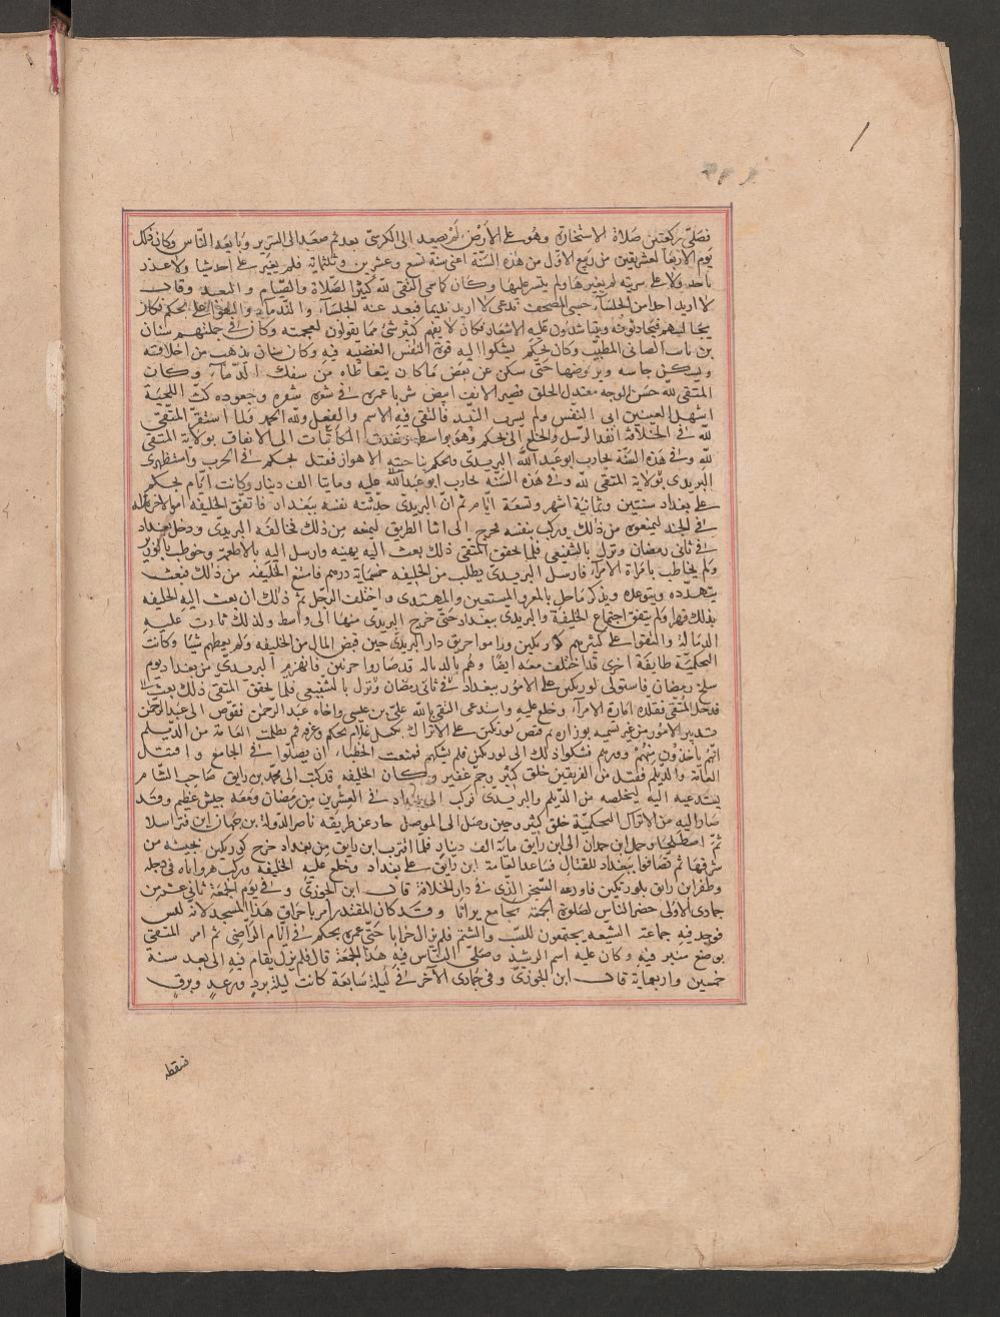 فصلى ركعتين صلاة الاستخارة وهو على الأرض لم يصعد الى الكرسي بعد ثم صعد الى السرير وبايعه الناس وكان ذلك
يوم الاربعا لعشر بقين من ربيع الاول من هذه السنة اعني سنة تسع وعشرين وثلثماية فلم يغير على احد شيا ولا غدر
باحد ولا على سريته لم يغيرها ولم يتسر عليها وكان كاسمه المتقي لله كثير الصلاة والصيام و التعبد وقال
لا اريد احدا من الجلسآء حسبي المصحف نديمي لا اريد نديما فقعد عنه الجلسآء و الندمآء و التفوا على بجكم فكان
يجالسهم فيحادثونه ويتناشدون عليه الاشعار فكان لا يفهم كثير شئ مما يقولون لعجمته وكان في جملتهم سنان
بن ثابت الصابي المطبب وكان بجكم يشكوا اليه قوة النفس الغضبيه فيه وكان سنان يهذب من اخلاقه
ويسكن جاشه ويروضها حتى سكن عن بعض ما كان يتعاطاه من سفك الدمآء وكان
المتقى لله حسن الوجه معتدل الخلق قصير الانف ابيض شربا بحمرة في شعره شقره وجعوده كث اللحية
اشهل العينين ابي النفس ولم يشرب النبيذ فالتقى فيه الاسم والفعل ولله الحمد فلما استقر المتقي
لله في الخلافة انفذ الرسل والخلع الى بجكم وهو بواسط ونفذت المكاتبات الى الافاق بولاية المتقي
لله وفي هذه السنة تحارب ابو عبد الله البريدي وبجكم بناحية الاهواز فقتل بجكم في الحرب واستظهر
البريدي بولاية المتقي لله وفي هذه السنة تحارب ابو عبد الله عليه ومايتا الف دينار وكانت ايام بجكم
على بغداد سنتين وثمانية اشهر وتسعة ايام ثم ان البريدي حدثته نفسه ببغداد فانفق الخليفه اموالا جزيله
في الجند ليمنعوه من ذلك وركب بنفسه فخرج الى اثنا الطريق ليمنعه من ذلك فخالفه البريدي ودخل بغداد
في ثاني رمضان ونزل بالشفيعي فلما تحقق المتقي ذلك بعث اليه يهنيه وارسل اليه بالاطعمة وخوطب بالوزير
ولم يخاطب بامرة الامرآء فارسل البريدي يطلب من الخليفه خمسماية درهم فامتنع الخليفه من ذلك فبعث
يتهدده ويتوعده ويذكره ما حل بالمعز والمستعين والمهتدي و اختلف الرجل ثم ذلك ان بعث اليه الخليفه
بذلك قهرا ولم يتفق اجتماع الخليفة والبريدي ببغداد حتى خرج البريدي منها الى واسط ولذلك ثارت عليه
الديالمة والتفوا على كبيرهم كورتكين وراموا حريق دار البريدي حين قبض المال من الخليفه ولم يعطهم شيا وكانت
البجكمية طايفة اخرى قد اختلفت معه ايضا وهم بالديالمه قد صاروا حزبين فانهزم البريدي من بغداد يوم
سلخ رمضان فاستولى لورتكين على الامور ببغداد في ثاني رمضان ونزل بالشفيعي فلما تحقق المتقي ذلك بعث
فدخل المتقي فقلده امارة الامرآء وخلع عليه واستدعى المتقي بالله علي بن عيسى واخاه عبد الرحمن ففوض الى عبد الرحمن
تدبير الامور من غير تسميه بوزاره ثم قبض لورتكين على الاتراك غلام بجكم وغرقه ثم تظلمت العامة من الديلم
انهم ياخذون منهم دورهم فشكوا ذلك الى لورتكين فلم يشكهم فمنعت الخطباء ان يصلوا في الجامع و اقتتل
العامة والديلم فقتل من الفريقين خلق كثير وجم غفير وكان الخليفه قد كتب الى محمد بن رايق صاحب الشام
يستدعيه اليه ليخلصه من الديلم والبريدي فركب الى بغداد في العشرين من رمضان ومعه جيش عظيم وقد
صار اليه من الاتراك البجكمية خلق كثير وحين وصل الى الموصل حاد عن طريقه ناصر الدولة بن حمدان ابن فتراسلا
ثم اصطلحا وحمل ابن حمدان الى ابن رايق مائة الف دينار فلما اقترب ابن رايق من بغداد خرج كورتكين بجيشه من
شرقيها ثم تصافا ببغداد للقتال فساعد العامة ابن رايق على بغداد وخلع عليه الخليفه وركب هو واياه في دجله
وظفر ابن رايق بلورتكين فاودعه السجن الذي في دار الخلافة قال ابن الجوزي وفي يوم الجمعة ثاني عشر من
جمادى الاولى حضر الناس لصلوة الجمعة بجامع براثا وقد كان المقتدر امر باحراق هذا المسجد لانه كبس
فوجد فيه جماعة الشيعه يجتمعون للسب والشتم فلم يزل خرابا حتى عمره بجكم في ايام الراضي ثم امر المتقي
بوضع منبر فيه وكان عليه اسم الرشيد وصلى الناس فيه هذا الجمعة قال فلم يزل يقام فيه الى بعد سنة
خمسين واربعماية قال ابن الجوزي وفي جمادى الاخر في ليلة سابعة كانت ليلة برد ورعد وبرق
فسقطه